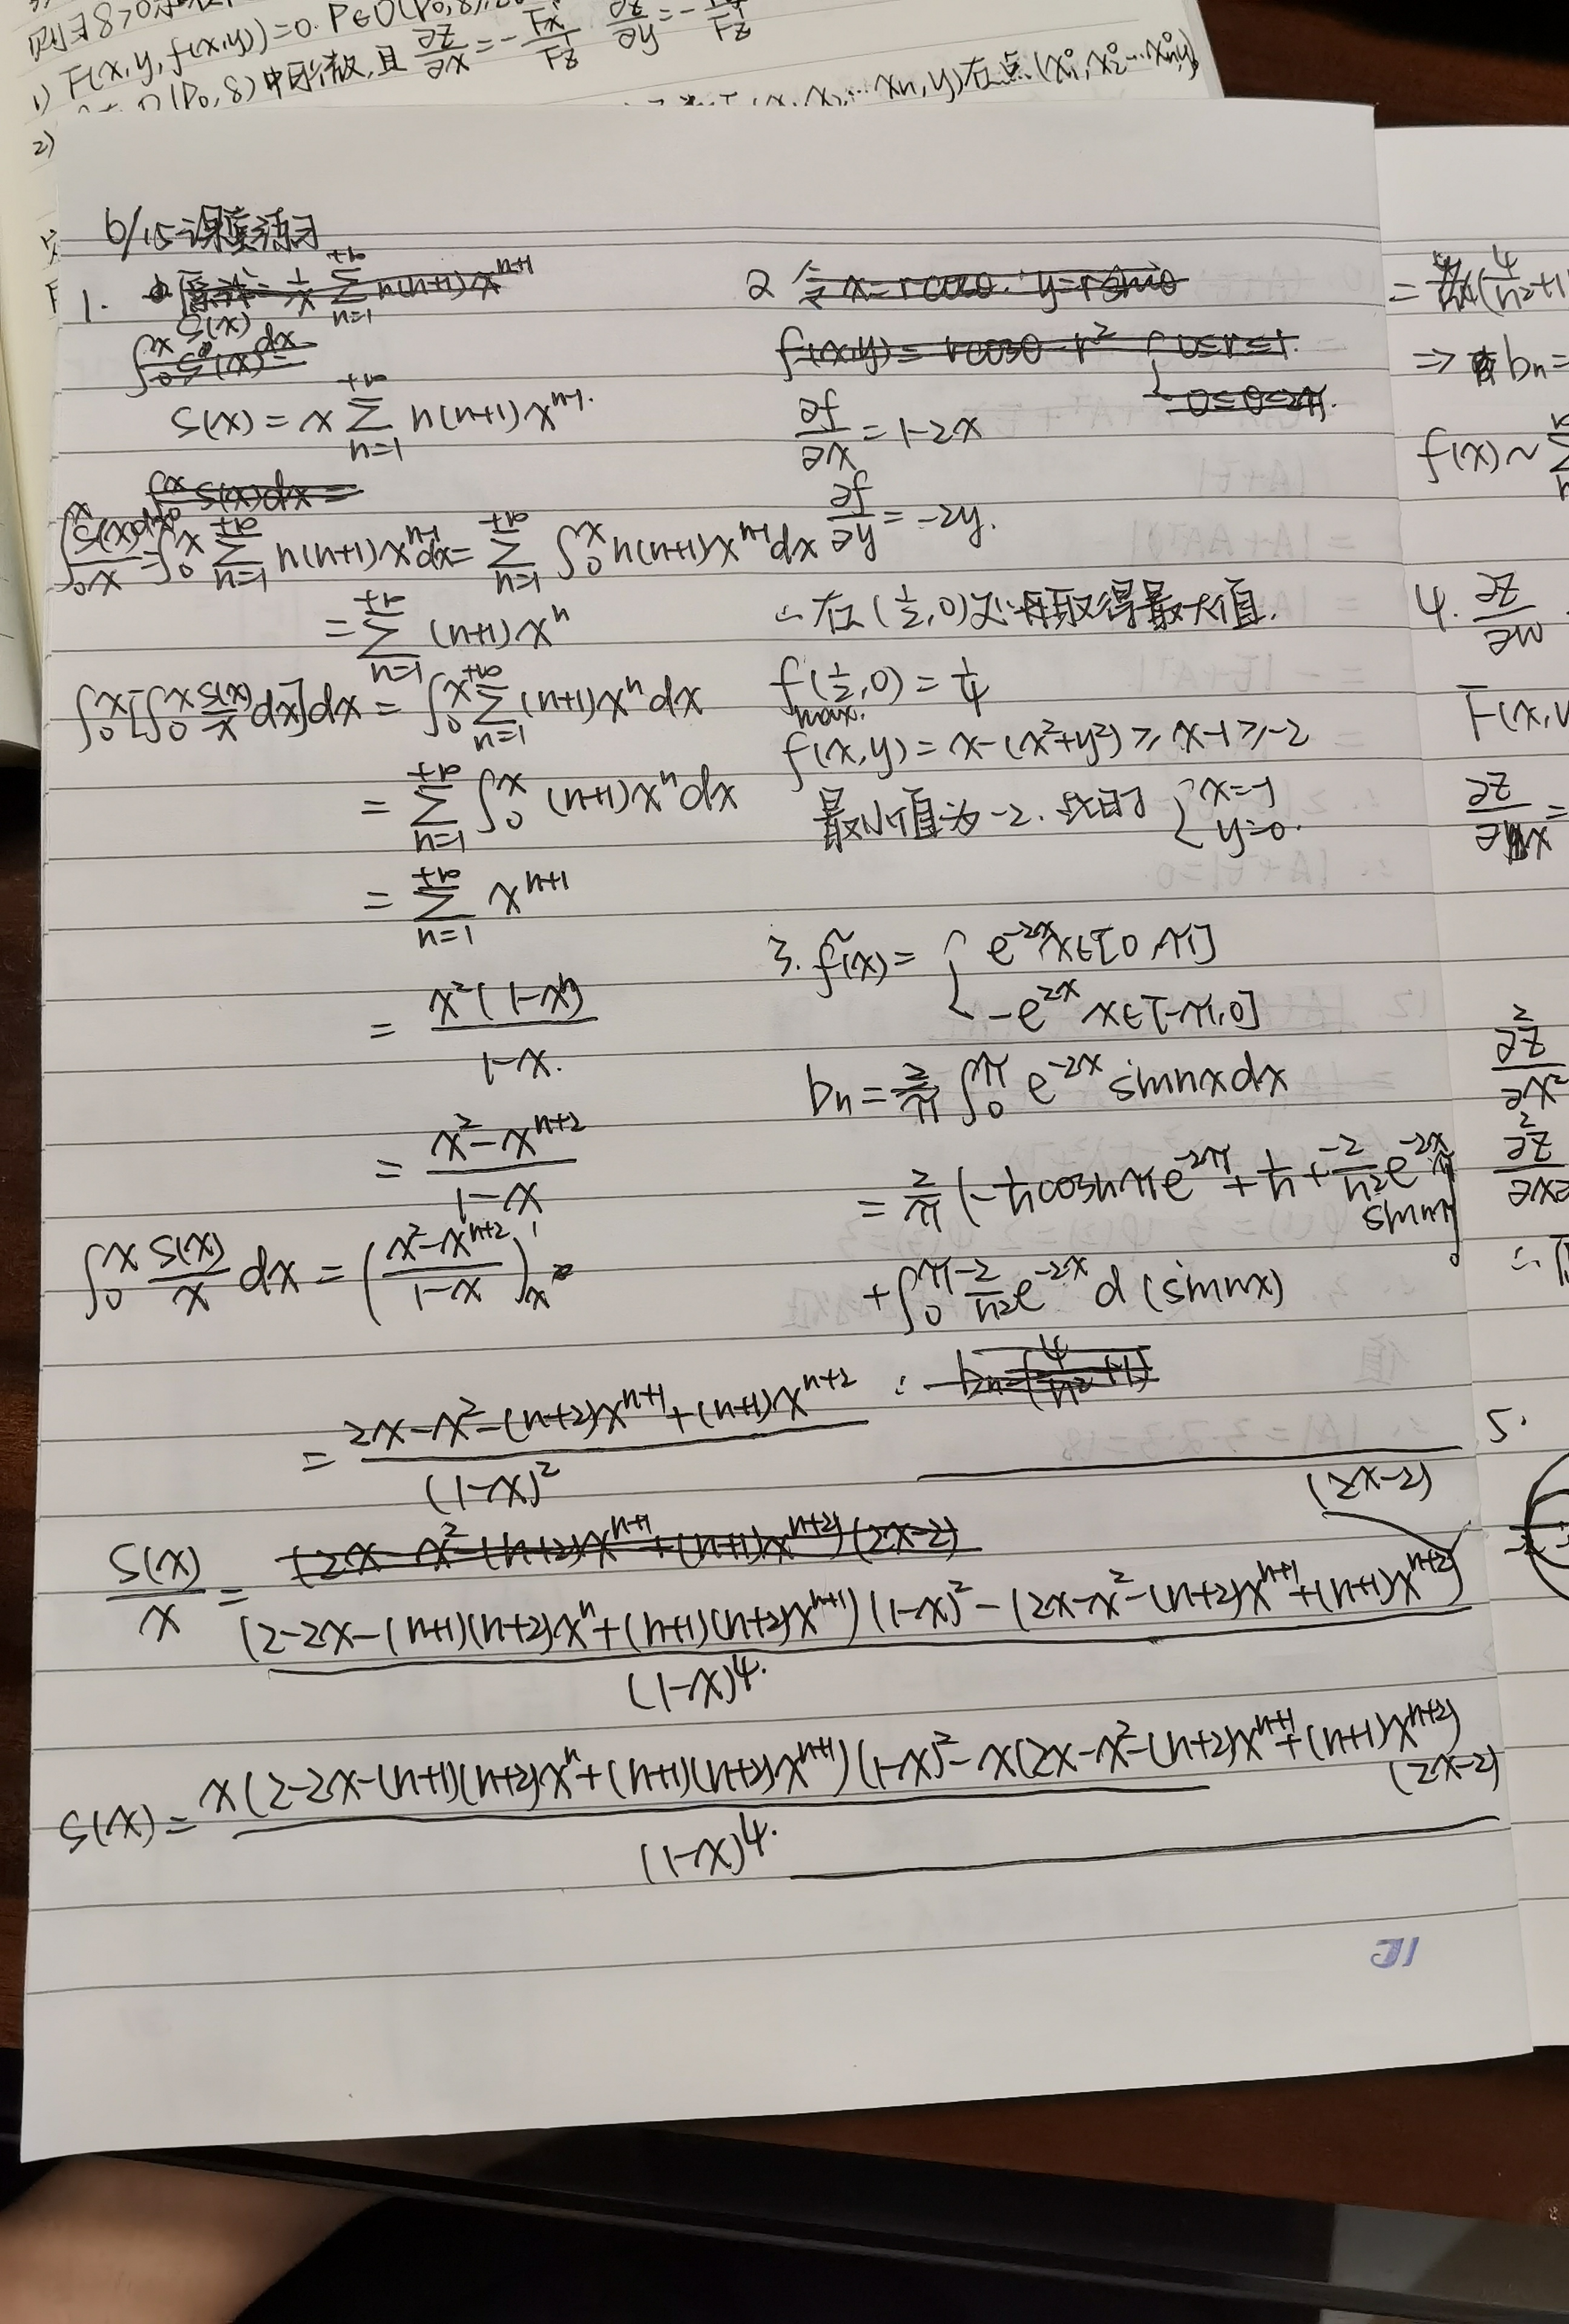 则∃δ>0
1) F(x,y,f(x,y))=0. P∈O(P0,δ)
O(P0,δ)中 且 ∂z/∂x = -Fx/Fz ∂z/∂y = -Fy/Fz
xn,y)在点(x1°,x2°…xn°,y
2)
6/15课堂练习
1.
S(x) = x ∑_{n=1}^{+∞} n(n+1)x^{n-1}.
∫_0^x S(x)/x dx = ∫_0^x ∑_{n=1}^{+∞} n(n+1)x^{n-1}dx = ∑_{n=1}^{+∞} ∫_0^x n(n+1)x^{n-1}dx
= ∑_{n=1}^{+∞} (n+1)x^n
∫_0^x[∫_0^x S(x)/x dx]dx = ∫_0^x ∑_{n=1}^{+∞} (n+1)x^n dx
= ∑_{n=1}^{+∞} ∫_0^x (n+1)x^n dx
= ∑_{n=1}^{+∞} x^{n+1}
= x²(1-x^n)/(1-x).
= (x²-x^{n+2})/(1-x)
∫_0^x S(x)/x dx = ((x²-x^{n+2})/(1-x))'_x
= (2x-x²-(n+2)x^{n+1}+(n+1)x^{n+2})/(1-x)²
(2x-2)
S(x)/x = ((2-2x-(n+1)(n+2)x^n+(n+1)(n+2)x^{n+1})(1-x)²-(2x-x²-(n+2)x^{n+1}+(n+1)x^{n+2})/(1-x)^4.
S(x) = (x(2-2x-(n+1)(n+2)x^n+(n+1)(n+2)x^{n+1})(1-x)²-x(2x-x²-(n+2)x^{n+1}+(n+1)x^{n+2})(2x-2)/(1-x)^4.
2 令x=rcosθ. y=rsinθ
f(x,y)=rcosθ-r² {0≤r≤1.
0≤θ≤2π.
∂f/∂x = 1-2x
∂f/∂y = -2y.
∴在(1/2,0)处 取得最大值.
f(1/2,0) = 1/4
max.
f(x,y) = x-(x²+y²) ≥ x-1 ≥ -2
最小值为-2. 此时 {x=-1
y=0.
3. f̃(x) = {e^{-2x} x∈[0,π]
-e^{2x} x∈[-π,0]
bn = 2/π ∫_0^π e^{-2x} sinnxdx
= 2/π (-1/n cosnπe^{-2π} + 1/n + -2/n² e^{-2x}
sinnx|_0^π
+∫_0^π -2/n² e^{-2x} d(sinnx)
⇒ bn=
f(x)~∑
4. ∂z/∂w
F(x,
∂z/∂x =
∂²z/∂x²
∂²z
5.
31